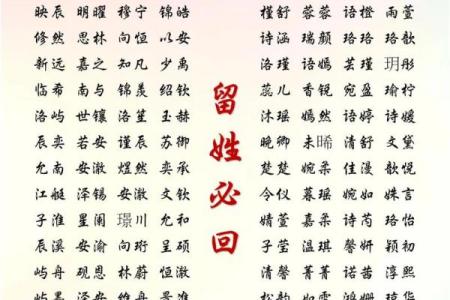 映辰 明曜 穆宁 锦皓
修然 思林 向恒 以安
新远 嘉之 知凡 少禹
临希 南与 锦羡 绍钦
洛屿 世镶 洛笙 玉赫
辰奕 若安 谨辰 苏卿
允南 安澈 煜然 奕承
江艇 泽锡 安澈 文钦
子淮 星阑 璟川 允和
辰溪 安渝 向珩 呈硕
屿舟 砚恩 林蔚 恒澈
留姓必回
槿舒 蓉蓉 语橙 雨萱
诗涵 瑞颜 珞珞 珞歆
洛瑾 语嫣 芸瑾 玥彤
蕊儿 香锐 宛盈 瑜柠
沐瑶 嫣然 语婷 诗媛
晚卿 未晞 清舒 文黛
楚楚 婉柔 佳漫 歆悦
令仪 暮瑶 婉如 姝言
婧萱 嘉柔 诗芮 珞怡
子莹 温琪 馨妍 颖初
清馨 菁菁 语茜 淳熙